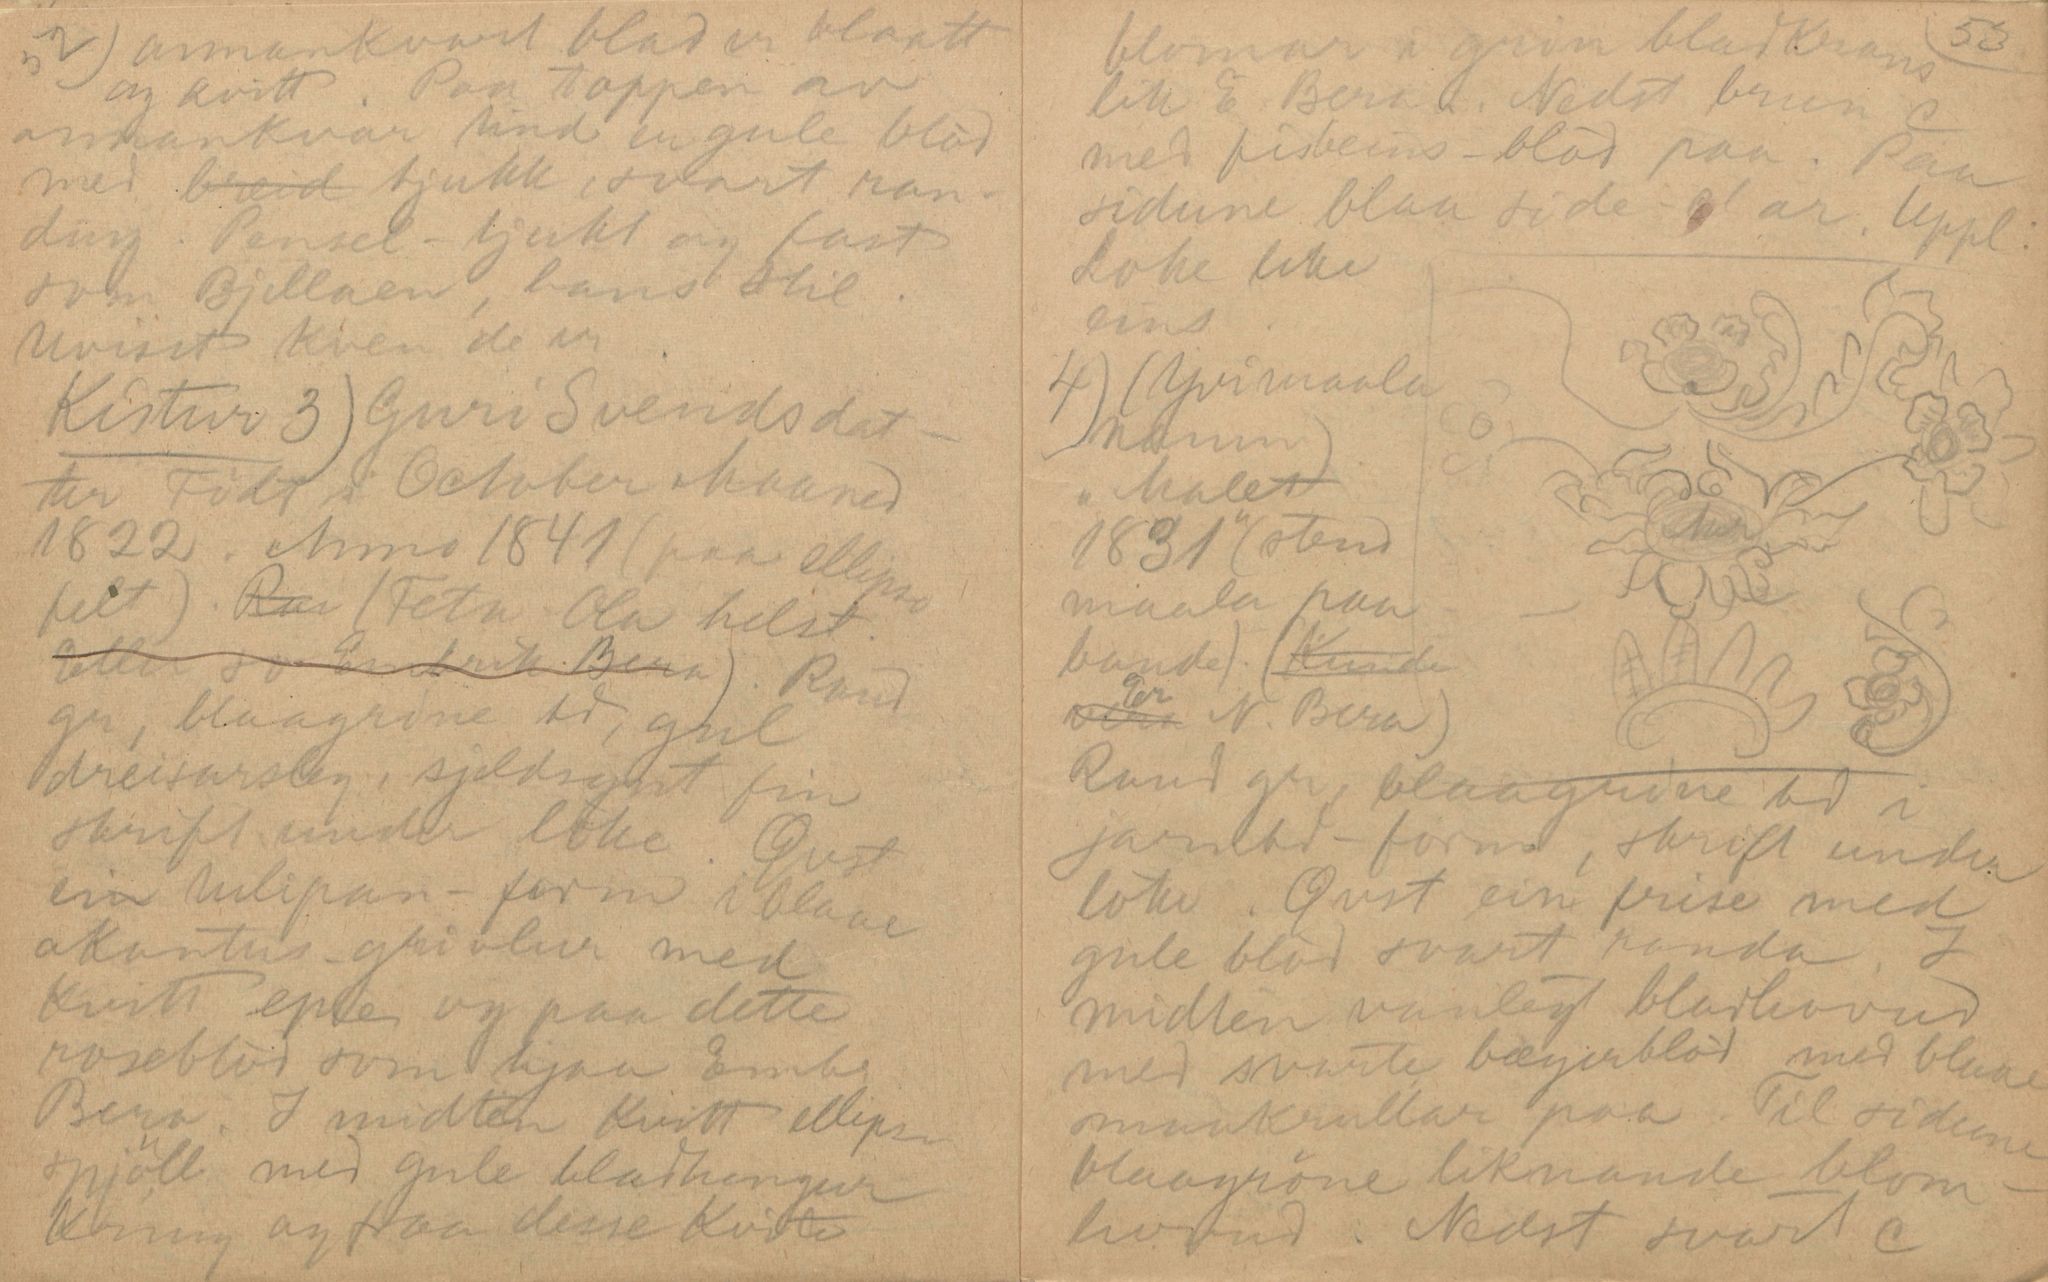 52) annankvart blad er blaatt
og kvitt. Paa toppen av
annankvar tind er gule blöd
med breid tjukk, svart ran-
ding. Pensel-tjukt og fast
som Bjellaen, hans stil.
Uvisst kven de er.
Kistur 3) Guri Svendsdat-
ter Född i October Maaned
1822. Anno 1841 (paa ellipse
felt). Rau (Teta-Ola helst.
Eller so Embrik Bera). Raud
gr, blaagröne bd, gul
dreisarsteg, sjeldsynt fin
skrift under loke. Övst
ein tulipan-form i blaae
akantus-griolur med
kvitt eple og paa dette
roseblöd som hjaa Embr
Bera. I midten kvitt ellipse
spjöll med gule bladhengur
kring og paa desse kvite
53
blomar i grön bladkrans
lik E. Bera. Nedst brun C
med fisbeins-blöd paa. Paa
sidune blaa side-C ar. Uppl:
Loke like
eins.
4) (Yvimaala
namn)
"Malet
1831" (stend
maala paa
bande). (Kunde
vera Er N. Bera)
Raud gr, blaagröne bd i
jarnbd-form, skrift under
loke. Övst ein frise med
gule blöd svart randa. I
midten vanlegt bladhovud
med svarte bægerblöd med blaae
smaakrullar paa. Til sidune
blaagröne liknande blom-
hovud. Nedst svart C